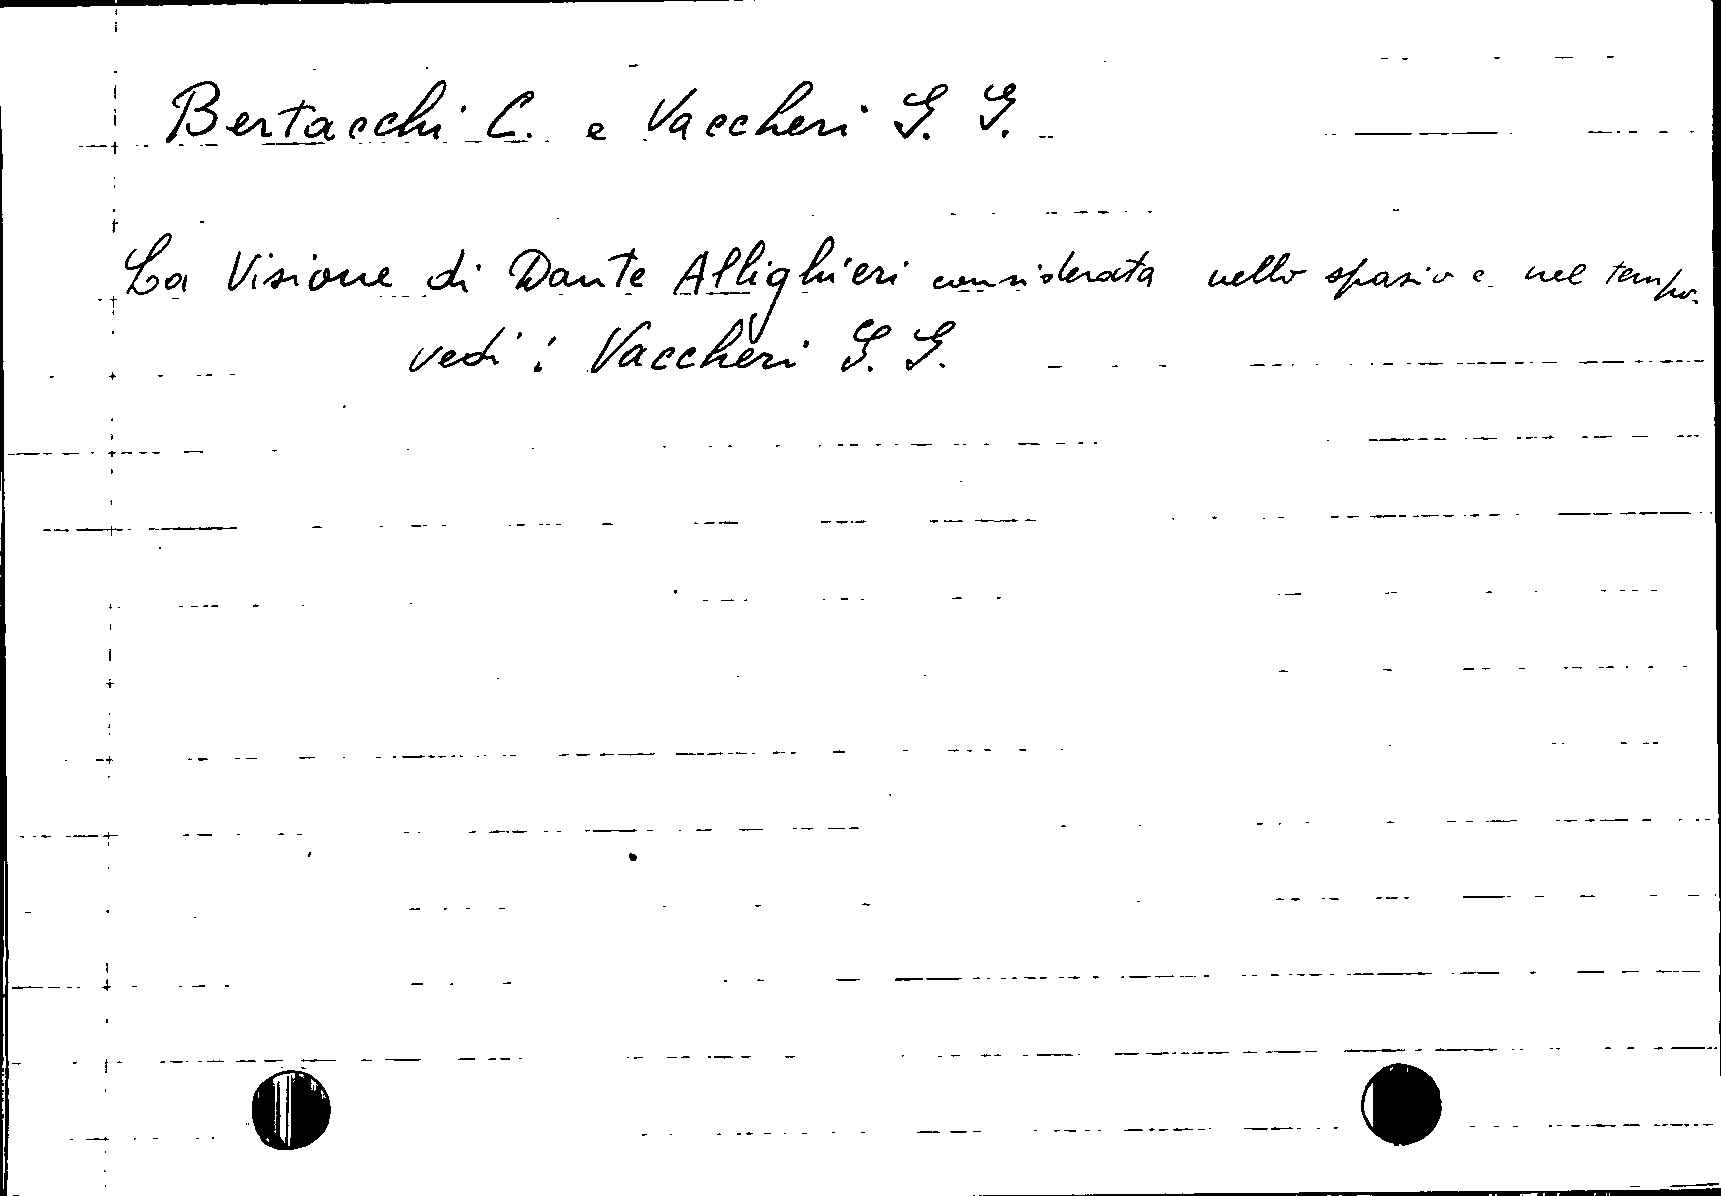 Bertacchi C. e Vaccheri G. G.
La Visione di Dante Allighieri considerata nello spazio e nel tempo.
vedi: Vaccheri G. G.